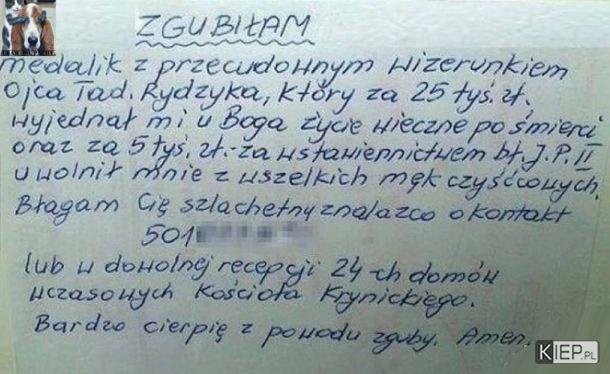 ZGUBIŁAM
medalik z przecudownym wizerunkiem
Ojca Tad. Rydzyka, który za 25 tyś. zł.
wyjednał mi u Boga życie wieczne po śmierci
oraz za 5 tyś. zł.-za wstawiennictwem bł. J.P. II
uwolnił mnie z wszelkich męk czyśćcowych.
Błagam Cię szlachetny znalazco o kontakt
501
lub w dowolnej recepcji 24-ch domów
wczasowych Kościoła Krynickiego.
Bardzo cierpię z powodu zguby. Amen.
KIEP.PL